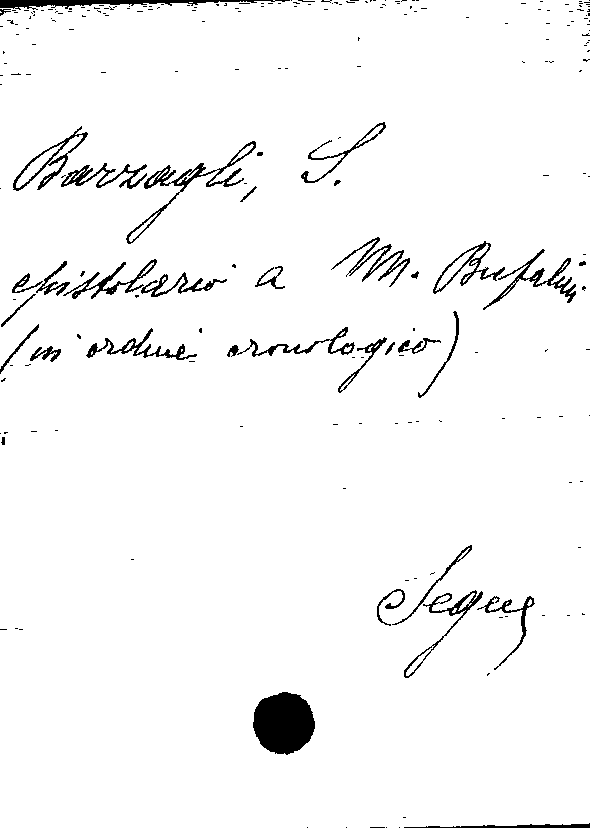 Barzagli, S.
epistolario a M. Bufalini
(in ordine cronologico)
Segue